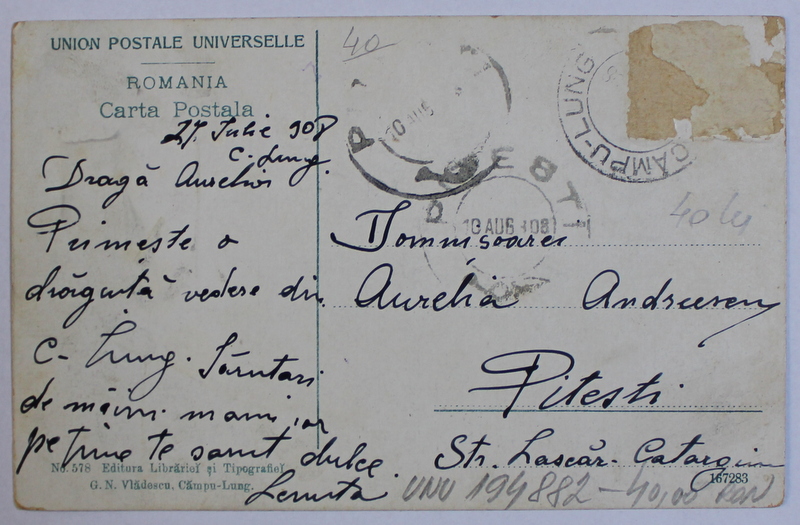 UNION POSTALE UNIVERSELLE
ROMANIA
Carta Postala
27 Iulie 908
C. Lung.
Dragă Aurelio
Primește o
drăguță vedere din
C-Lung. Sărutări
de mâini mamei, iar
pe tine te sărut dulce
Lenuța
No. 578 Editura Librăriei și Tipografiei
G. N. Vlădescu. Câmpu-Lung.
40
10 AUG
CÂMPU-LUNG
PITESTI
10 AUG 908
40 lei
Domnișoarei
Aurelia Andreescu
Pitesti
Str. Lascăr-Catargiu
167283
UNU 194882 - 40,00 RON